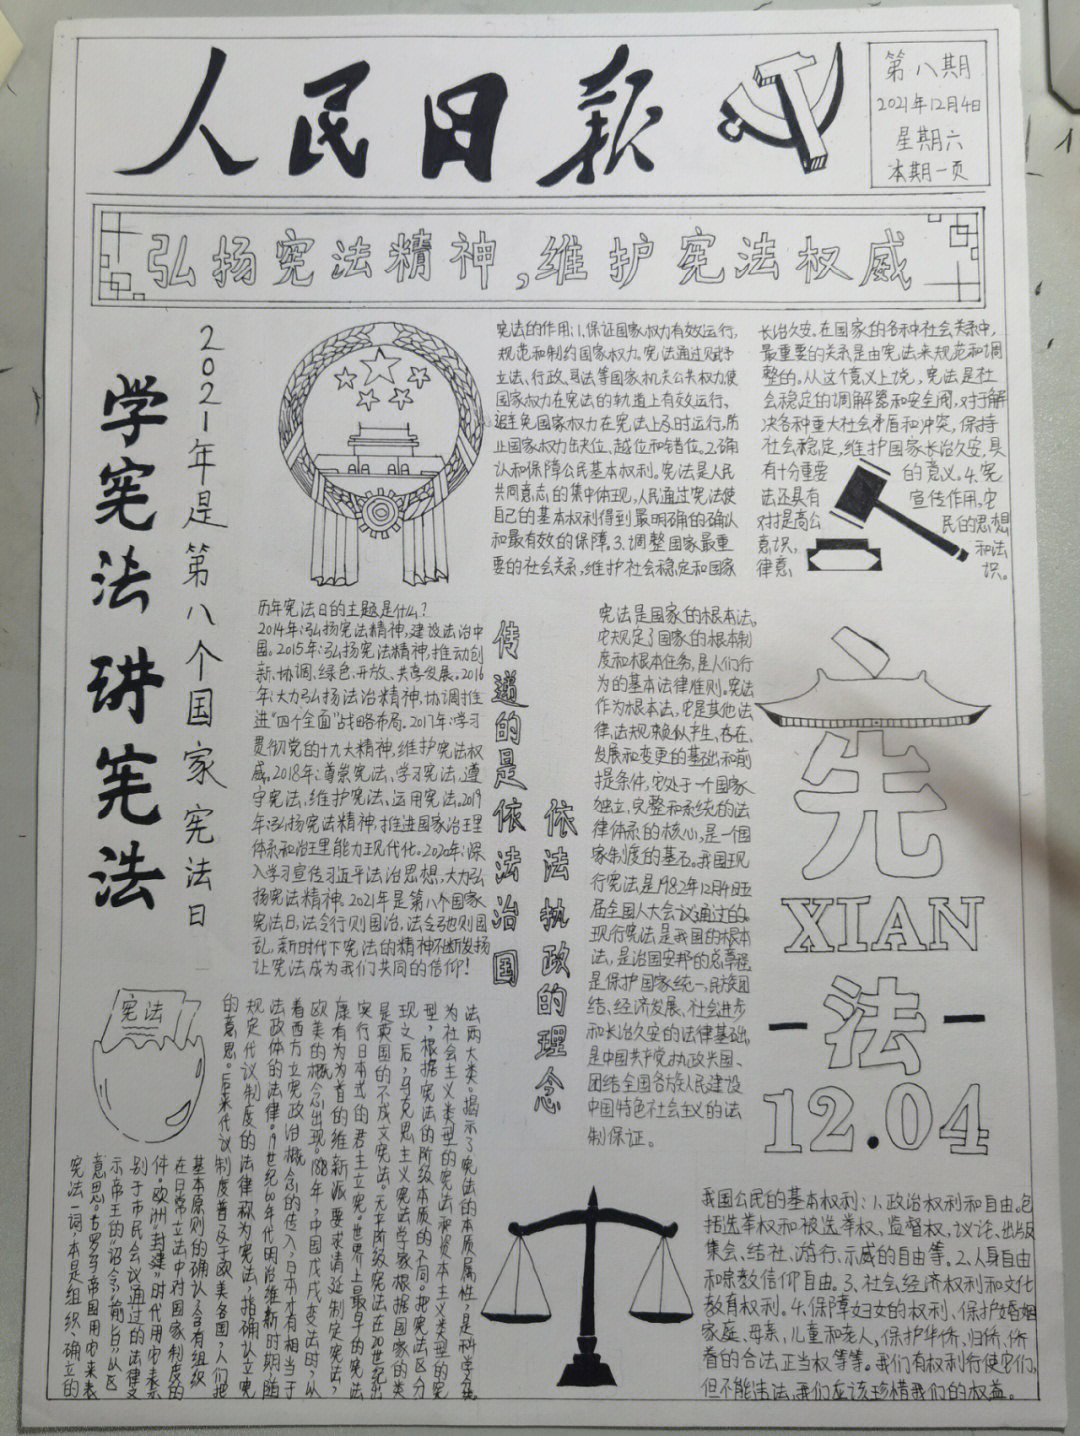 人民日报
第八期
2021年12月4日
星期六
本期一页
弘扬宪法精神,维护宪法权威
学宪法讲宪法
2021年是第八个国家宪法日
宪法的作用:1.保证国家权力有效运行,
规范和制约国家权力。宪法通过赋予
立法、行政、司法等国家机关公共权力,使
国家权力在宪法的轨道上有效运行,
避免国家权力在宪法上及时运行,防
止国家权力缺位、越位和错位。2.确
认和保障公民基本权利。宪法是人民
共同意志的集中体现,人民通过宪法使
自己的基本权利得到最明确的确认
和最有效的保障。3.调整国家最重
要的社会关系,维护社会稳定和国家
长治久安。在国家的各种社会关系中,
最重要的关系是由宪法来规范和调
整的。从这个意义上说,宪法是社
会稳定的调解器和安全阀,对于解
决各种重大社会矛盾和冲突,保持
社会稳定,维护国家长治久安,具
有十分重要的意义。4.宪
法还具有宣传作用。它
对提高公民的思想
意识,和法
律意识。
历年宪法日的主题是什么?
2014年:弘扬宪法精神,建设法治中
国。2015年:弘扬宪法精神,推动创
新、协调、绿色、开放、共享发展。2016
年:大力弘扬法治精神,协调推
进“四个全面”战略布局。2017年:学习
贯彻党的十九大精神,维护宪法权
威。2018年:尊崇宪法、学习宪法、遵
守宪法、维护宪法、运用宪法。2019
年:弘扬宪法精神,推进国家治理
体系和治理能力现代化。2020年:深
入学习宣传习近平法治思想,大力弘
扬宪法精神。2021年是第八个国家
宪法日,法令行则国治,法令弛则国
乱,新时代下宪法的精神不断发扬
让宪法成为我们共同的信仰!
传递的是依法治国
依法执政的理念
宪法是国家的根本法,
它规定了国家的根本制
度和根本任务,是人们行
为的基本法律准则。宪法
作为根本法,它是其他法
律、法规赖以产生、存在、
发展和变更的基础和前
提条件,它处于一个国家
独立、完整和系统的法
律体系的核心,是一个国
家制度的基石。我国现
行宪法是1982年12月4日五
届全国人大会议通过的。
现行宪法是我国的根本
法,是治国安邦的总章程
是保护国家统一、民族团
结、经济发展、社会进步
和长治久安的法律基础,
是中国共产党执政兴国、
团结全国各族人民建设
中国特色社会主义的法
制保证。
宪
XIAN
-法-
12.04
宪法
宪法一词,本是组织、确立的
意思。古罗马帝国用它来表
示帝王的“诏令”“谕旨”,以区
别于市民会议通过的法律文
件。欧洲“封建”时代用它表
在日常立法中对国家制度的
基本原则的确认,含有组织
制度普及于欧美各国,人们把
的意思。后来代议
规定代议制度的法律称为宪法,指确认立宪
法政体的法律。19世纪60年代明治维新时期,随
着西方立宪政治概念的传入,日本才有相当于
欧美的概念出现。1898年,中国戊戌变法时,以
康有为为首的维新派要求清廷制定宪法,
实行日本式的君主立宪。世界上最早的宪法
是英国的不成文宪法。无产阶级宪法在20世纪出
现之后,马克思主义宪法学家根据国家的类
型,根据宪法的阶级本质的不同,把宪法区分
为社会主义类型的宪法和资本主义类型的宪
法两大类。揭示了宪法的本质属性,是科学分类
我国公民的基本权利:1.政治权利和自由。包
括选举权和被选举权、监督权,议论、出版
集会、结社、游行、示威的自由等。2.人身自由
和宗教信仰自由。3.社会经济权利和文化
教育权利。4.保障妇女的权利、保护婚姻
家庭、母亲,儿童和老人,保护华侨、归侨、侨
眷的合法正当权等等。我们有权利行使它们,
但不能违法,我们应该珍惜我们的权益。